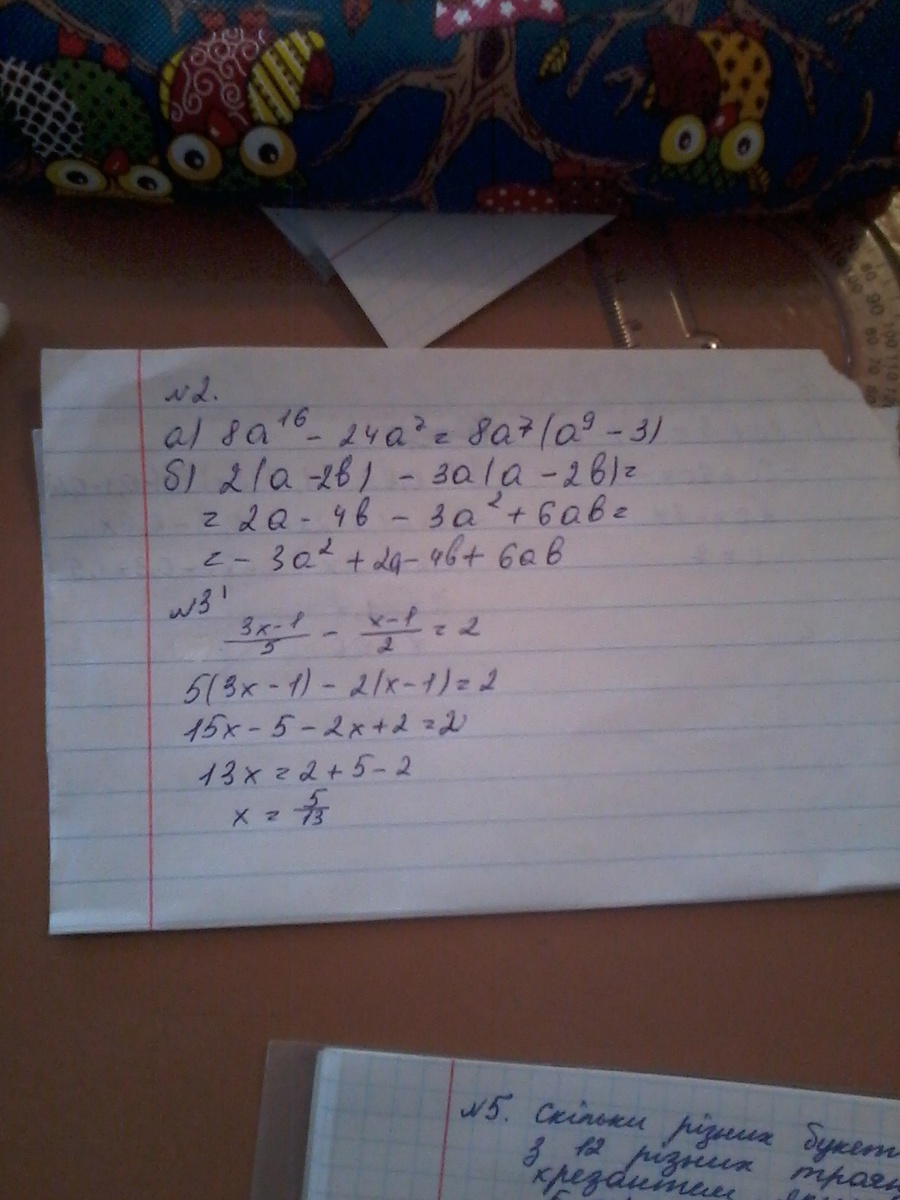 №2.
а) 8a¹⁶ - 24a⁷ = 8a⁷(a⁹ - 3)
б) 2(a - 2b) - 3a(a - 2b) =
= 2a - 4b - 3a² + 6ab =
= - 3a² + 2a - 4b + 6ab
№3
(3x-1)/5 - (x-1)/2 = 2
5(3x - 1) - 2(x - 1) = 2
15x - 5 - 2x + 2 = 2
13x = 2 + 5 - 2
x = 5/13
№5. Скільки різних букет
з 12 різних
хризантем